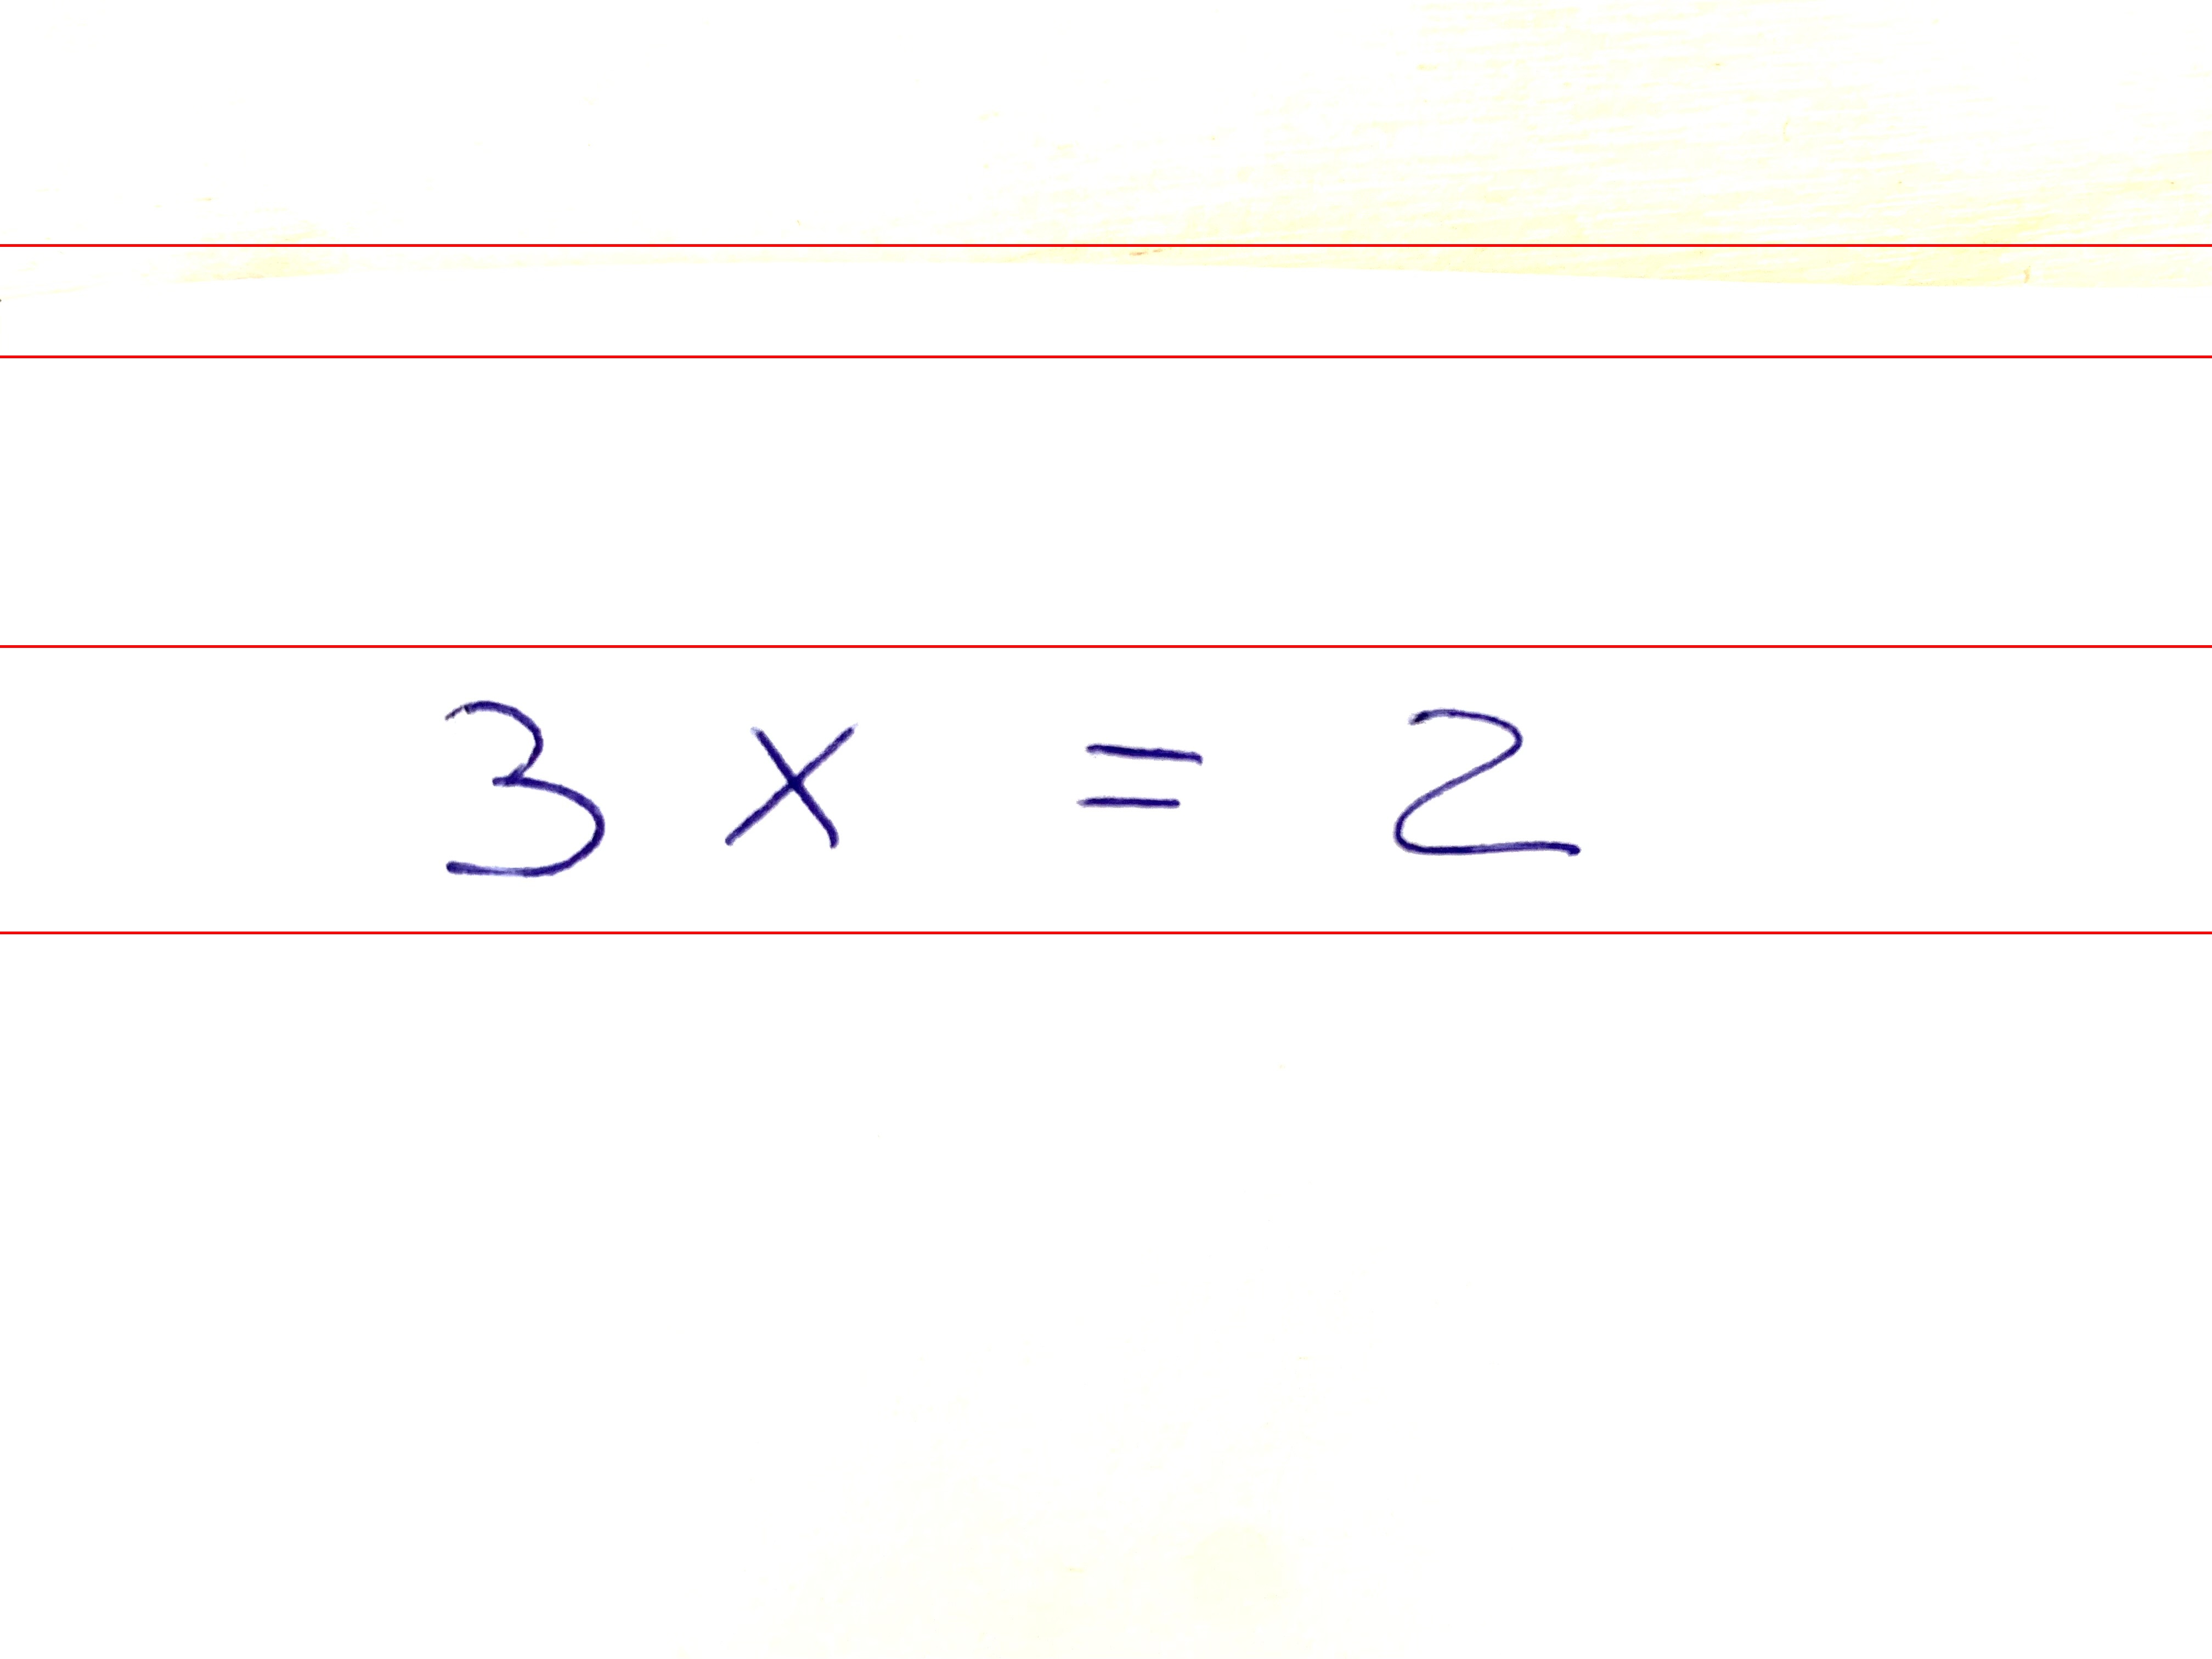 3 x = 2